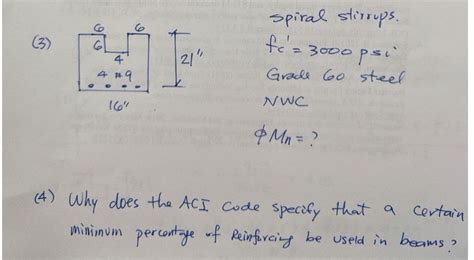 (3)
6 6
6
4
4 #9
16"
21"
spiral stirrups.
fc' = 3000 psi
Grade 60 steel
NWC
φMn = ?
(4) Why does the ACI Code specify that a certain
minimum percentage of Reinforcing be useld in beams?